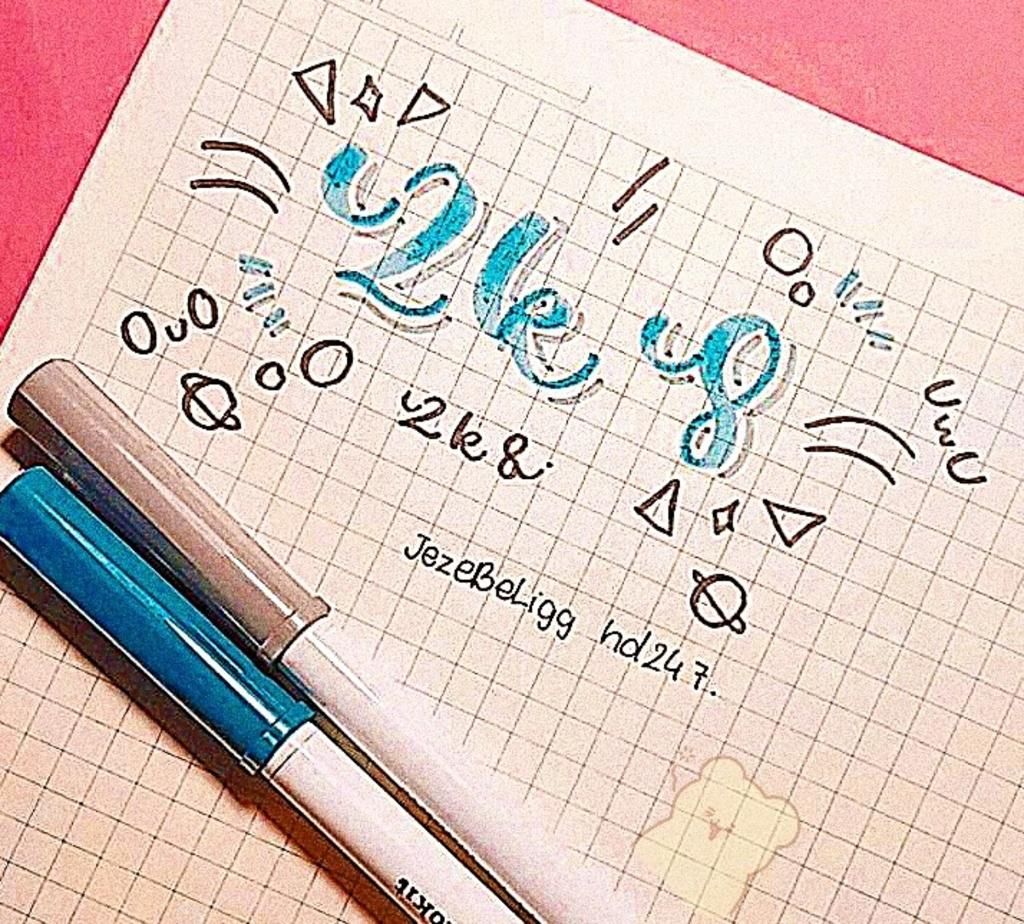 2k8
OuO
UwU
2k8.
JezeBeLigg hd247.